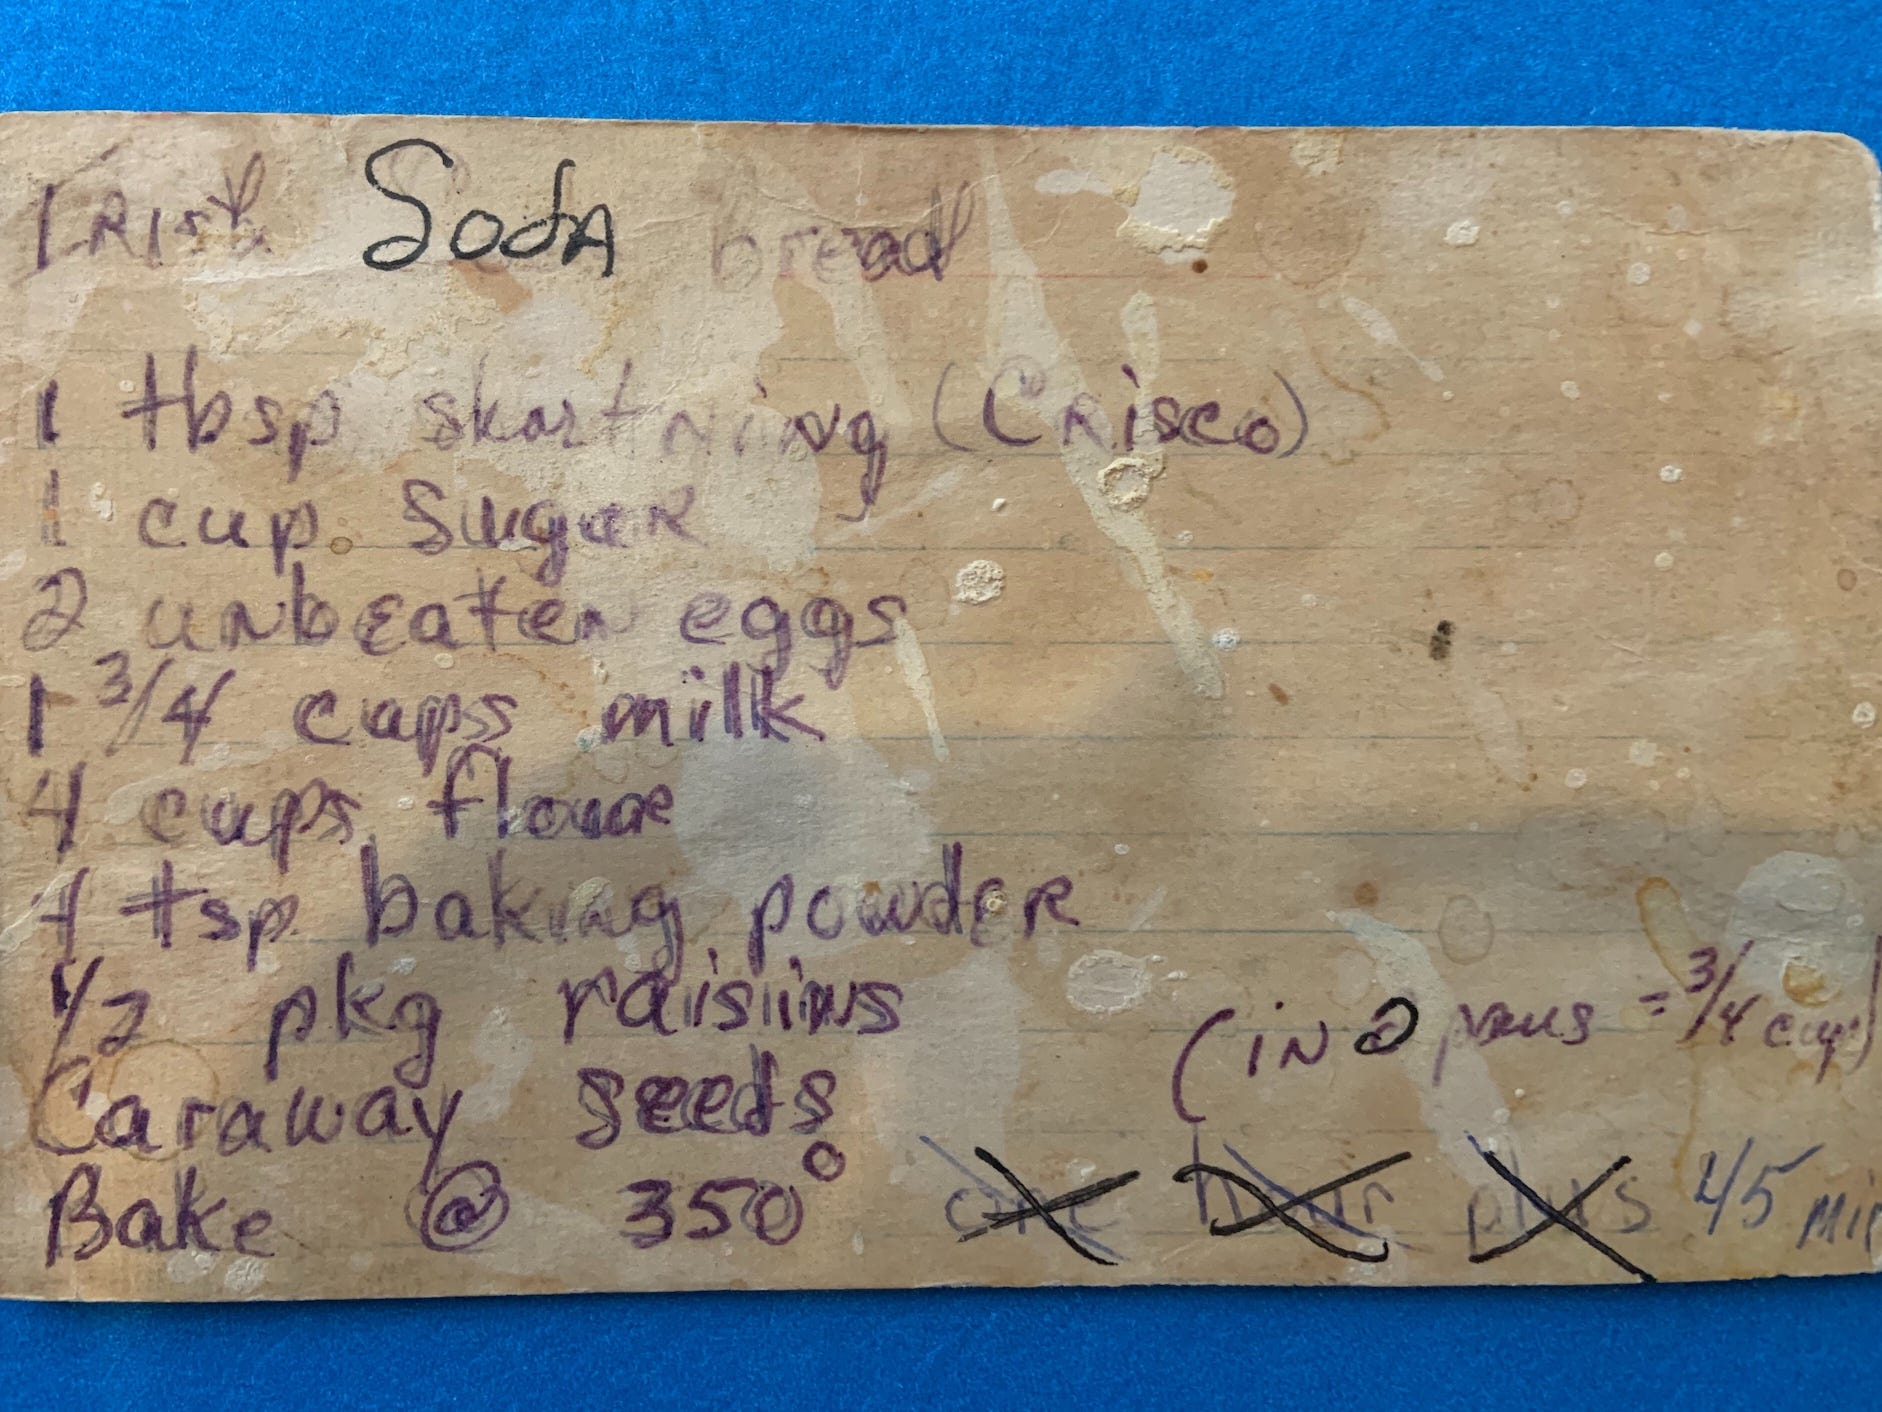 Irish Soda bread
1 tbsp shortning (Crisco)
1 cup sugar
2 unbeaten eggs
1 3/4 cups milk
4 cups flour
4 tsp baking powder
1/2 pkg raisins
(in 2 pans = 3/4 cup)
Caraway seeds
Bake @ 350° one hour plus 45 min